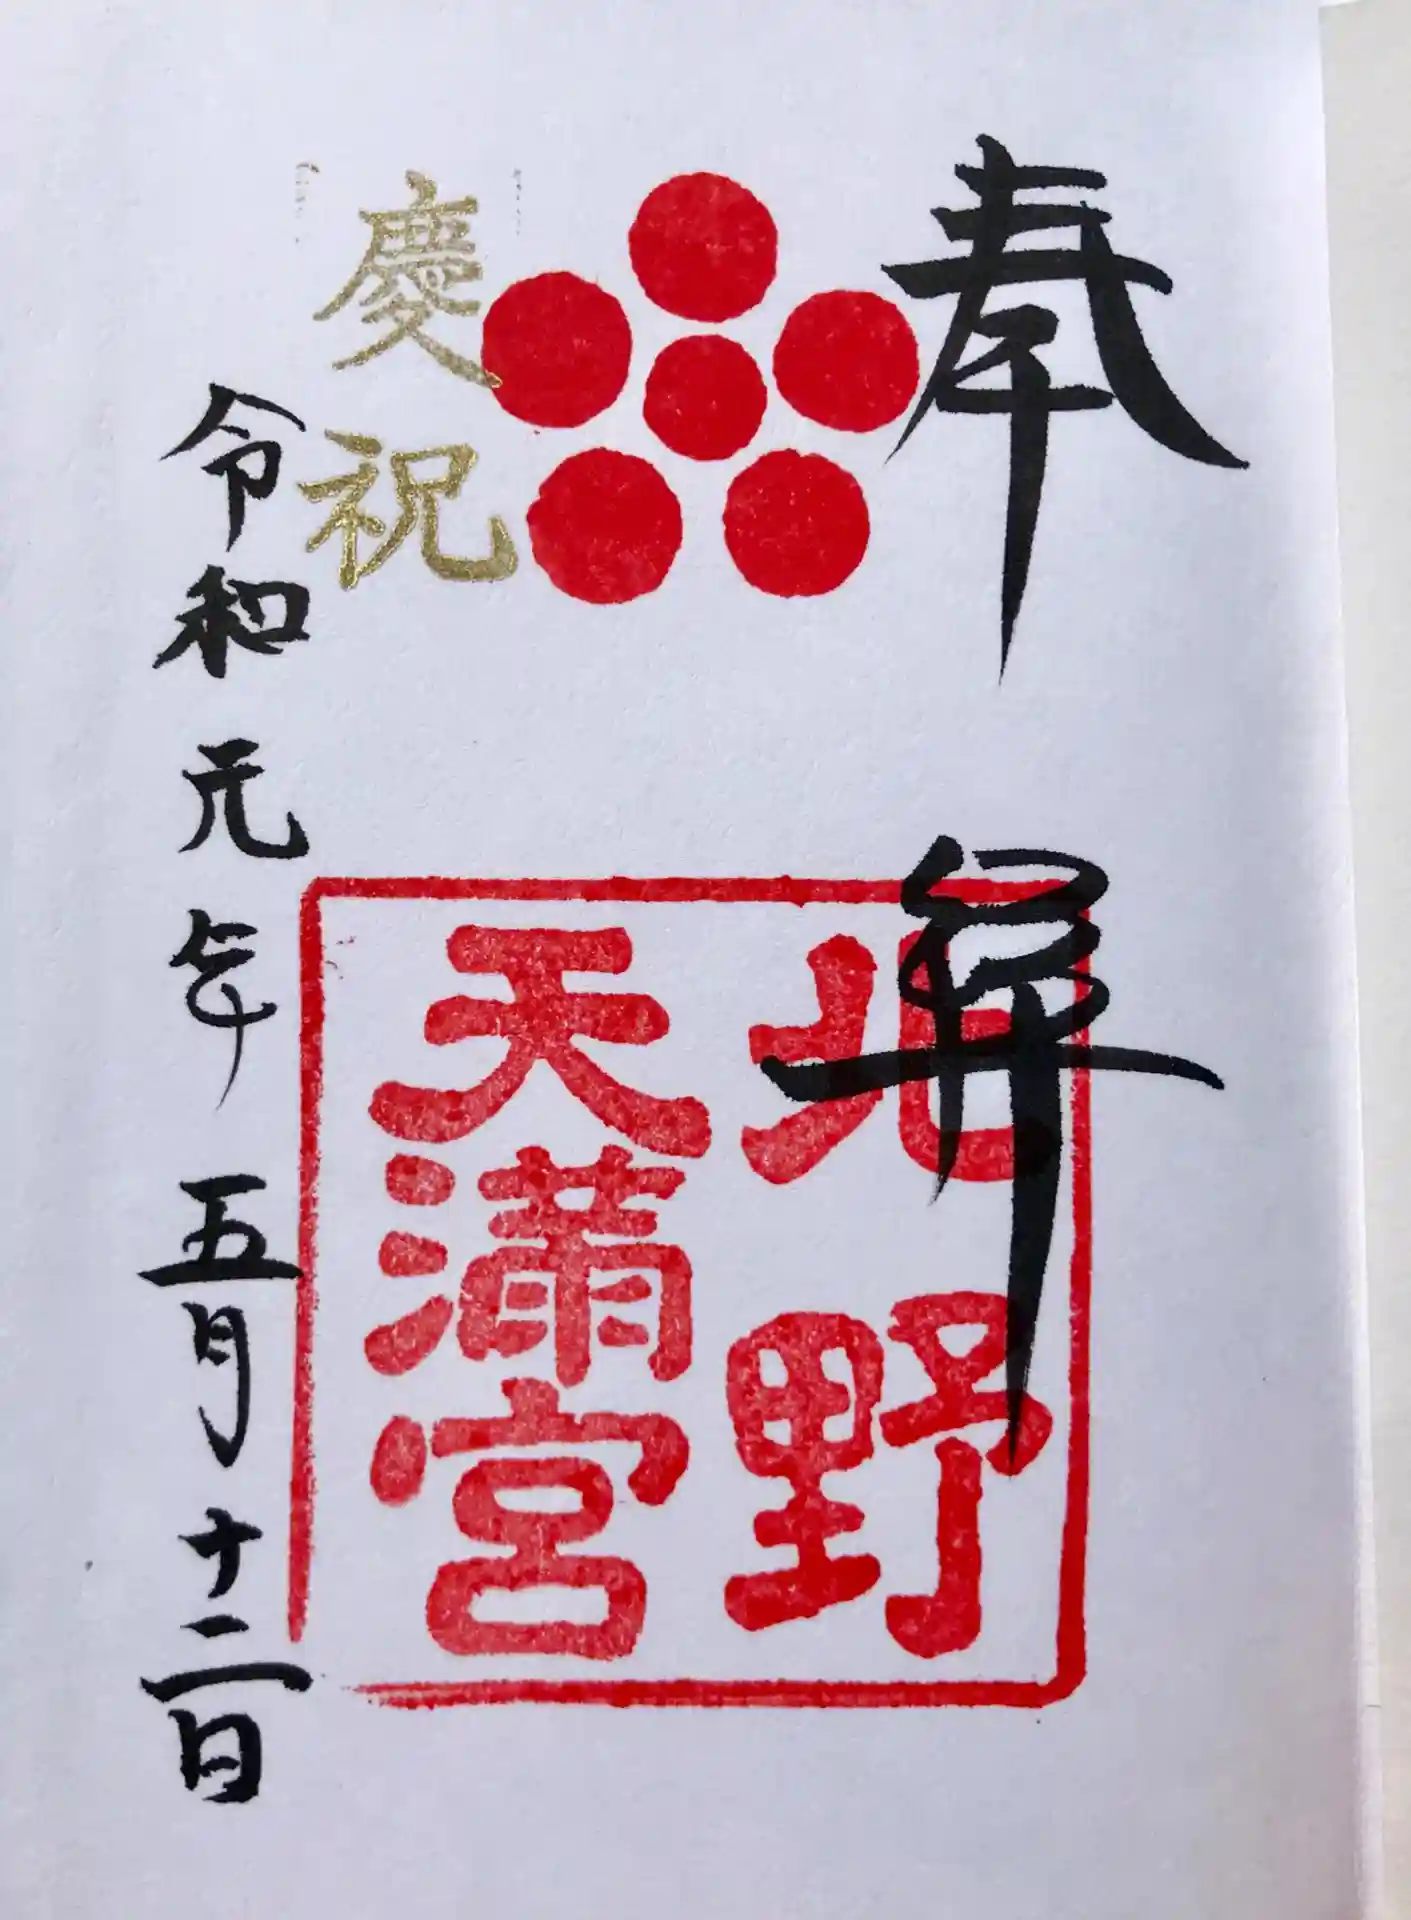 奉拜
北野
天満宮
慶祝
令和元年五月十二日